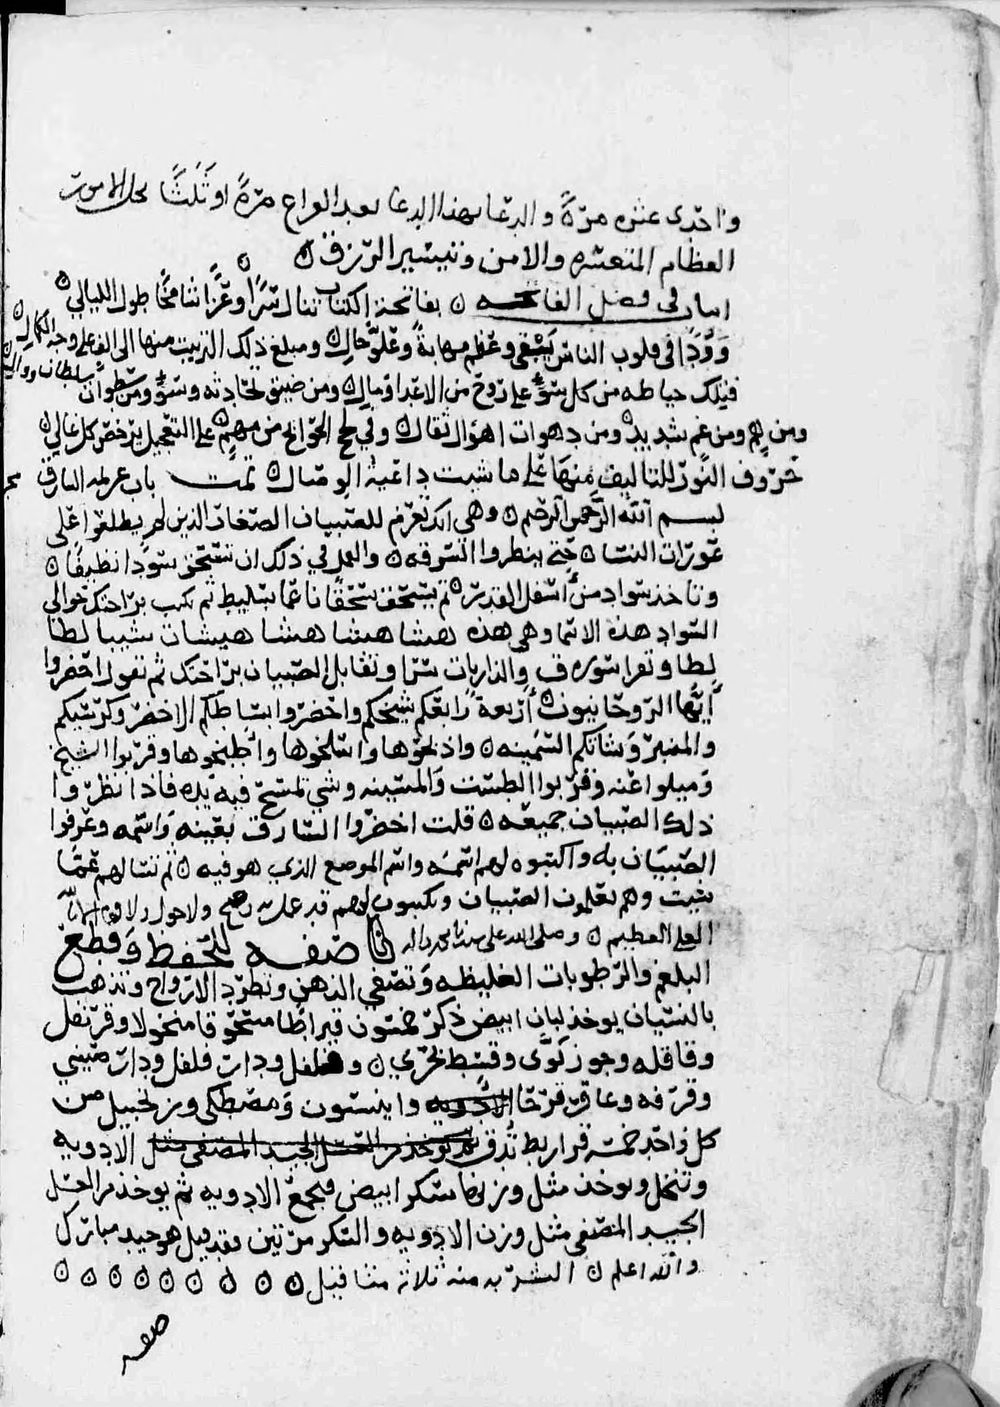 واحدى عشره مرّةً والدعا بهذا الدعا بعد الواح مرّةً او ثَلَثًا لحل الامور
العظام المتعسّره والامن وتيسير الرّزق ن
اما في فضل الفاتحـه ن بفاتحة الكتاب تنال سرًّا وعزًّا شامخًا طول الليالي ن
وودًّا في قلوب الناس يبقى وعظم مهابةً وعلوّ حال ن ومبلغ ذلك الترتيب منها الى الف على وجه الكمال ن
فتلك حياطه من كل سوءٍ على روح من الاعدا ومال ن ومن ضيق لحادثه وسوءٍ ومن سطوات سلطان ووال ن
ومن هم ومن غم شديد ن ومن دهوات اهوال ثقال ن وفي نجح الحوائج من مهم ن على التعجيل يرخص كل غالي ن
حروف النور للتاليف منها على ما شيت داعية الوصال ن تمت باب عزيمه السارق
بسم الله الرحمن الرحيم ن وهي انك تعزم للصبيان الصغار الذين لم يطلعوا على
عورات النسا ن حتى ينظروا السرقه ن والعمل في ذلك ان تستحق سوادا نظيفًا ن
وتاخذ سواد من اسفل القدر ن ثم يستحق سحقًا ناعمًا بسليط ثم تكتب براحتك حوالي
السواد هذه الاسما وهي هذه هشا هشا هشا هشا هيشان شيبا لطا
لطا وتقرا سورة ق والذاريات سرًا وتقابل الصبيان براحتك ثم تقول احضروا
أيّها الروحانيون ن أربعة رابعكم شيخكم واحضروا بساطكم الاخضر وكرسيكم
والمنبر وشاتكم السمينه ن واذبحوها واسلخوها واطبخوها وقربوا الشيخ
وميلوا عنه وقربوا الطست والمسينه وشي تمسح فيه يده فاذا نظروا
ذلك الصبيان جميعه ن قلت احضروا السارق بعينه واسمه وعرفوا
الصبيان به واكتبوه لهم اسمه واسم الموضع الذي هو فيه ن ثم تسالهم عمّا
شيت وهم يعلمون الصبيان ويكتبون لهم قد عمل به وصح ولا حول ولا قوة الا بالله
العلي العظيم ن وصلى الله على سيدنا محمد واله صفـه للحفظ وقطع
البلغم والرطوبات الغليظه وتصفي الذهن وتطرد الارواح وتذهب
بالنسيان يوخذ لبان ابيض ذكر خمسون قيراطا مسحوقا منخولا وقرنفل
وقاقله وجوز بوى وقسط بحري ن وفلفل ودار فلفل ودار صيني
وقرفه وعاقر قرحا الادويه وانيسون ومصطكى وزنجبيل من
كل واحد خمسه قراريط تُدق ثم يوخذ من العسل الجيد المصفى مثل الادويه
وتنخل ويوخذ مثل وزنها سكر ابيض فيجمع الادويه ثم يوخذ من العسل
الجيد المصفى مثل وزن الادويه والسكر مرّتين فقد قيل هو جيد مبارك
والله اعلم ن الشربه منه ثلاثه مثاقيل ن ن ن ن ن ن ن ن ن
صفه